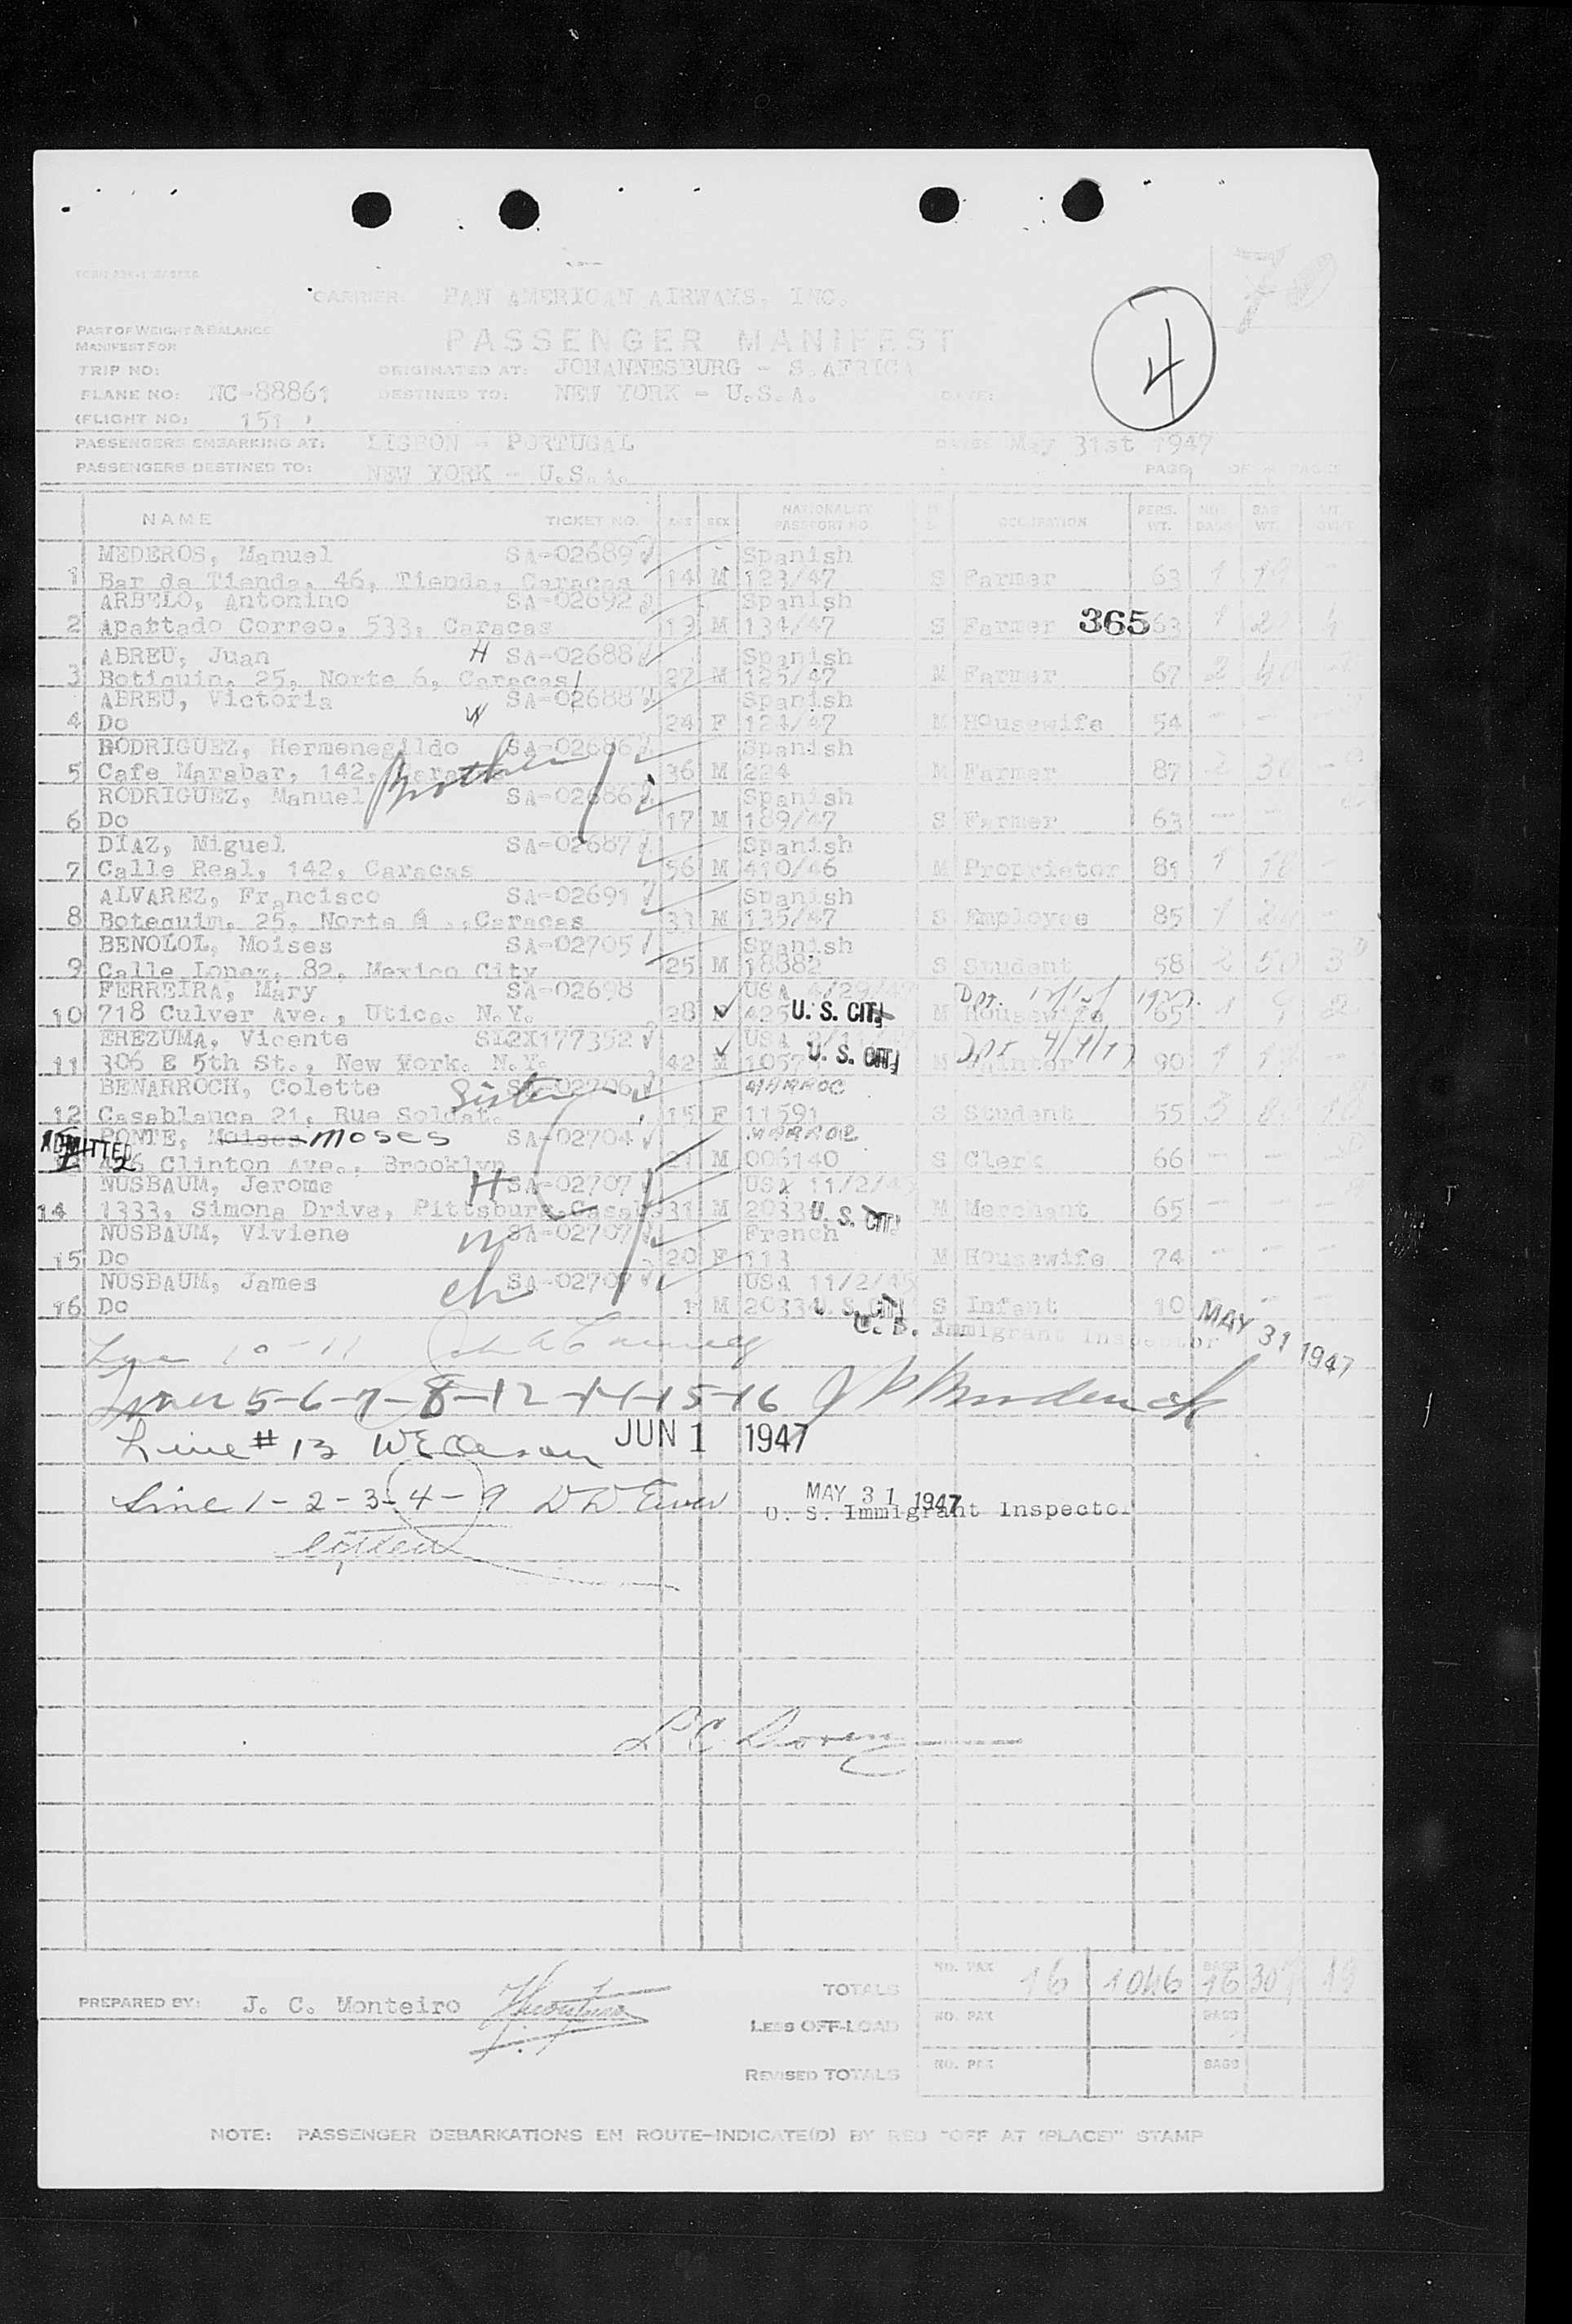 70
CARRIER: PAN AMERICAN AIRWAYS, INC.
4
PART OF WEIGHT & BALANCE
MANIFEST FOR
PASSENGER MANIFEST
TRIP NO: ORIGINATED AT: JOHANNESBURG - S.AFRICA
PLANE NO: NC-88861 DESTINED TO: NEW YORK - U.S.A. DATE:
(FLIGHT NO: 151 )
PASSENGERS EMBARKING AT: LISBON - PORTUGAL DATE: May 31st 1947
PASSENGERS DESTINED TO: NEW YORK - U.S.A. PAGE OF PAGES
NAME TICKET NO. AGE SEX NATIONALITY PASSPORT NO OCCUPATION PERS. WT. NO. BAGS BAG WT.
MEDEROS, Manuel SA-02689 Spanish
1 Bar da Tienda, 46, Tienda, Caracas 14 M 123/47 S Farmer 63 1 19 -
ARBELO, Antonino SA-02692 Spanish
2 Apattado Correo, 533, Caracas 19 M 134/47 S Farmer 365 63 1
ABREU, Juan H SA-02688 Spanish
3 Botiquin, 25, Norte 6, Caracas 27 M 125/47 M Farmer 67 2 40
ABREU, Victoria SA-02688 Spanish
4 Do W 24 F 124/47 M Housewife 54 - -
RODRIGUEZ, Hermenegildo SA-02686 Spanish
5 Cafe Marabar, 142, Brother 36 M 224 M Farmer 87 2 30
RODRIGUEZ, Manuel SA-02686 Spanish
6 Do 17 M 189/47 S Farmer 63 - -
DIAZ, Miguel SA-02687 Spanish
7 Calle Real, 142, Caracas 56 M 410/46 M Proprietor 81 1 18 -
ALVAREZ, Francisco SA-02691 Spanish
8 Botequim, 25, Norte 6 .,Caracas 33 M 135/47 S Employee 85 1 -
BENOLOL, Moises SA-02705 Spanish
9 Calle Lopez, 82, Mexico City 25 M 18882 S Student 58 2 50 3
FERREIRA, Mary SA-02698 USA 4/29/47
10 718 Culver Ave., Utica. N.Y. 28 425 U. S. CIT. M Housewife 65 1 9 2
EREZUMA, Vicente SI2X177352 USA
11 306 E 5th St., New York. N.Y. 42 M 1057 U. S. CIT. M Painter 90 1
BENARROCH, Colette Sister SA-02706 MARROC
12 Casablanca 21, Rue Soldat. 15 F 11591 S Student 55 3
ADMITTED PONTE, Moises MOSES SA-02704 MARROC
Clinton Ave., Brooklyn 21 M 006140 S Clerk 66 - -
NUSBAUM, Jerome H SA-02707 USA 11/2/45
14 1333, Simona Drive, Pittsburg 31 M U. S. CIT. M Merchant 65 - -
NUSBAUM, Viviene W SA-02707 French
15 Do 20 F 113 M Housewife 74 - - -
NUSBAUM, James ch SA-02707 USA 11/2/45
16 Do 1 M 20334 U. S. CIT. S Infant 10 - -
U. S. Immigrant Inspector MAY 31 1947
Line 10-11
Lines 5-6-7-8-12-14-15-16
Line # 13 JUN 1 1947
Line 1-2-3-4-9
MAY 31 1947
U. S. Immigrant Inspector
TOTALS NO. PAX 16 1046 BAGS 16 307 13
PREPARED BY: J. C. Monteiro
LESS OFF-LOAD NO. PAX BAGS
REVISED TOTALS NO. PAX BAGS
NOTE: PASSENGER DEBARKATIONS EN ROUTE-INDICATE(D) BY RED "OFF AT (PLACE)" STAMP